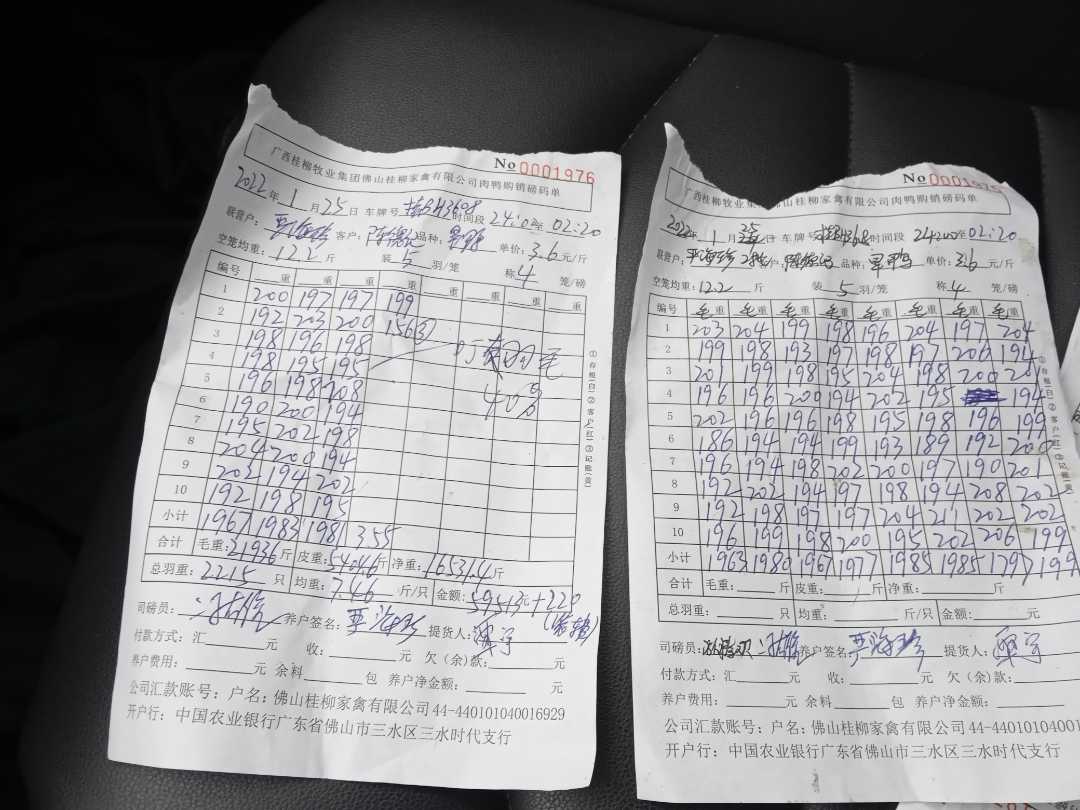 No 0001976
广西桂柳牧业集团佛山桂柳家禽有限公司肉鸭购销磅码单
2022年 1 月 25 日 车牌号 时间段 24:00至 02:20
联营户: 客户: 品种: 单价: 3.6 元/斤
空笼均重: 12.2 斤 装 5 羽/笼 称 4 笼/磅
编号 重 重 重 重 重 重 重 重
1 200 197 197 199
2 192 203 200 156
3 198 196 198
4 198 195 195
5 196 198 208
6 190 200 194
7 195 202 198
8 204 200 194
9 202 194 202
10 192 198 195
小计 1967 1983 1981 355
合计 毛重: 21936 斤 皮重: 5404.6 斤 净重: 16531.4 斤
总羽重: 2215 只 均重: 7.46 斤/只 金额: 59513 元 +220
司磅员: 养户签名: 提货人:
付款方式: 汇 元 收: 元 欠(余)款: 元
养户费用: 元 余料 包 养户净金额: 元
公司汇款账号: 户名: 佛山桂柳家禽有限公司 44-440101040016929
开户行: 中国农业银行广东省佛山市三水区三水时代支行
①存根(白)②客户(红)③记账(黄)
No 000197
广西桂柳牧业集团佛山桂柳家禽有限公司肉鸭购销磅码单
2022年 1 月 25 日 车牌号 时间段 24:00至 02:20
联营户: 客户: 品种: 单价: 3.6 元/斤
空笼均重: 12.2 斤 装 5 羽/笼 称 4 笼/磅
编号 毛重 毛重 毛重 毛重 毛重 毛重 毛重 毛重
1 203 204 199 198 196 204 197 204
2 199 198 193 197 198 197 206 194
3 201 199 198 195 204 198 200 201
4 196 196 200 194 202 195 194
5 202 196 196 198 195 198 196 199
6 186 194 194 199 193 189 192 200
7 196 194 198 202 200 197 190 201
8 192 202 194 197 198 194 208 202
9 192 198 197 197 204 211 202 202
10 196 199 198 200 195 202 206 199
小计 1963 1980 1967 1977 1985 1985 1797 199
合计 毛重: 斤 皮重: 斤 净重: 斤
总羽重: 只 均重: 斤/只 金额: 元
司磅员: 养户签名: 提货人:
付款方式: 汇 元 收: 元 欠(余)款:
养户费用: 元 余料 包 养户净金额:
公司汇款账号: 户名: 佛山桂柳家禽有限公司 44-44010104001
开户行: 中国农业银行广东省佛山市三水区三水时代支行